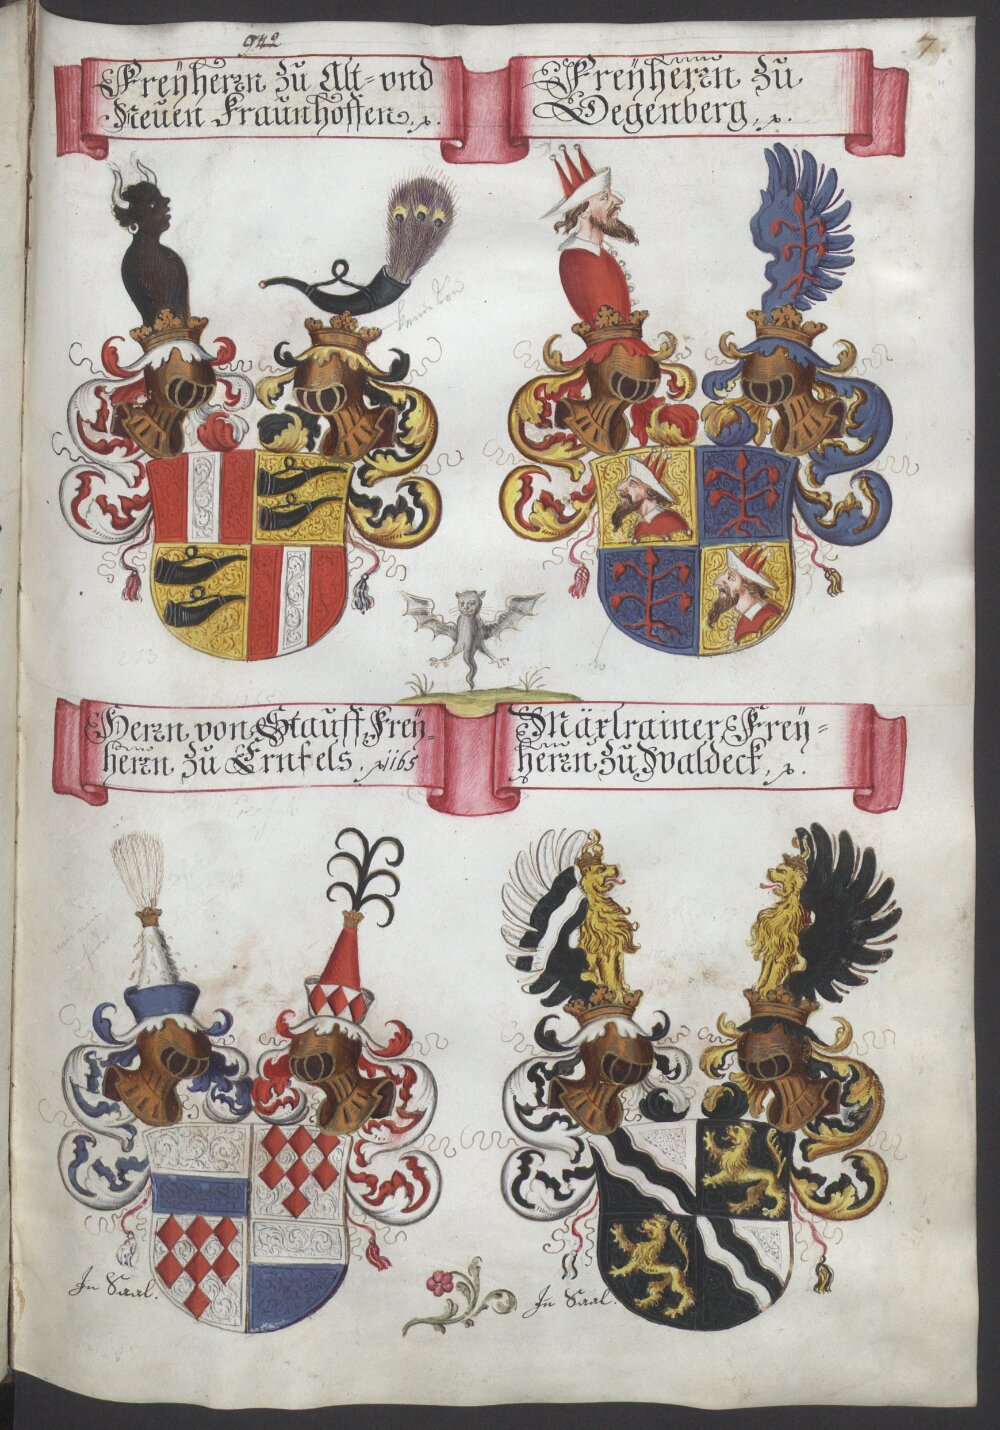 942
7.
Freÿherrn zu Alt- vnd
Neuen Fraunhoffen, ꝛ.
Freÿherrn zu
Degenberg, ꝛ.
Herrn von Stauff, Freÿ-
herrn zu Ernfels, ꝛ 1165
Mäxlrainer, Freÿ-
herrn zu Waldeck, ꝛ.
In Saal.
In Saal.